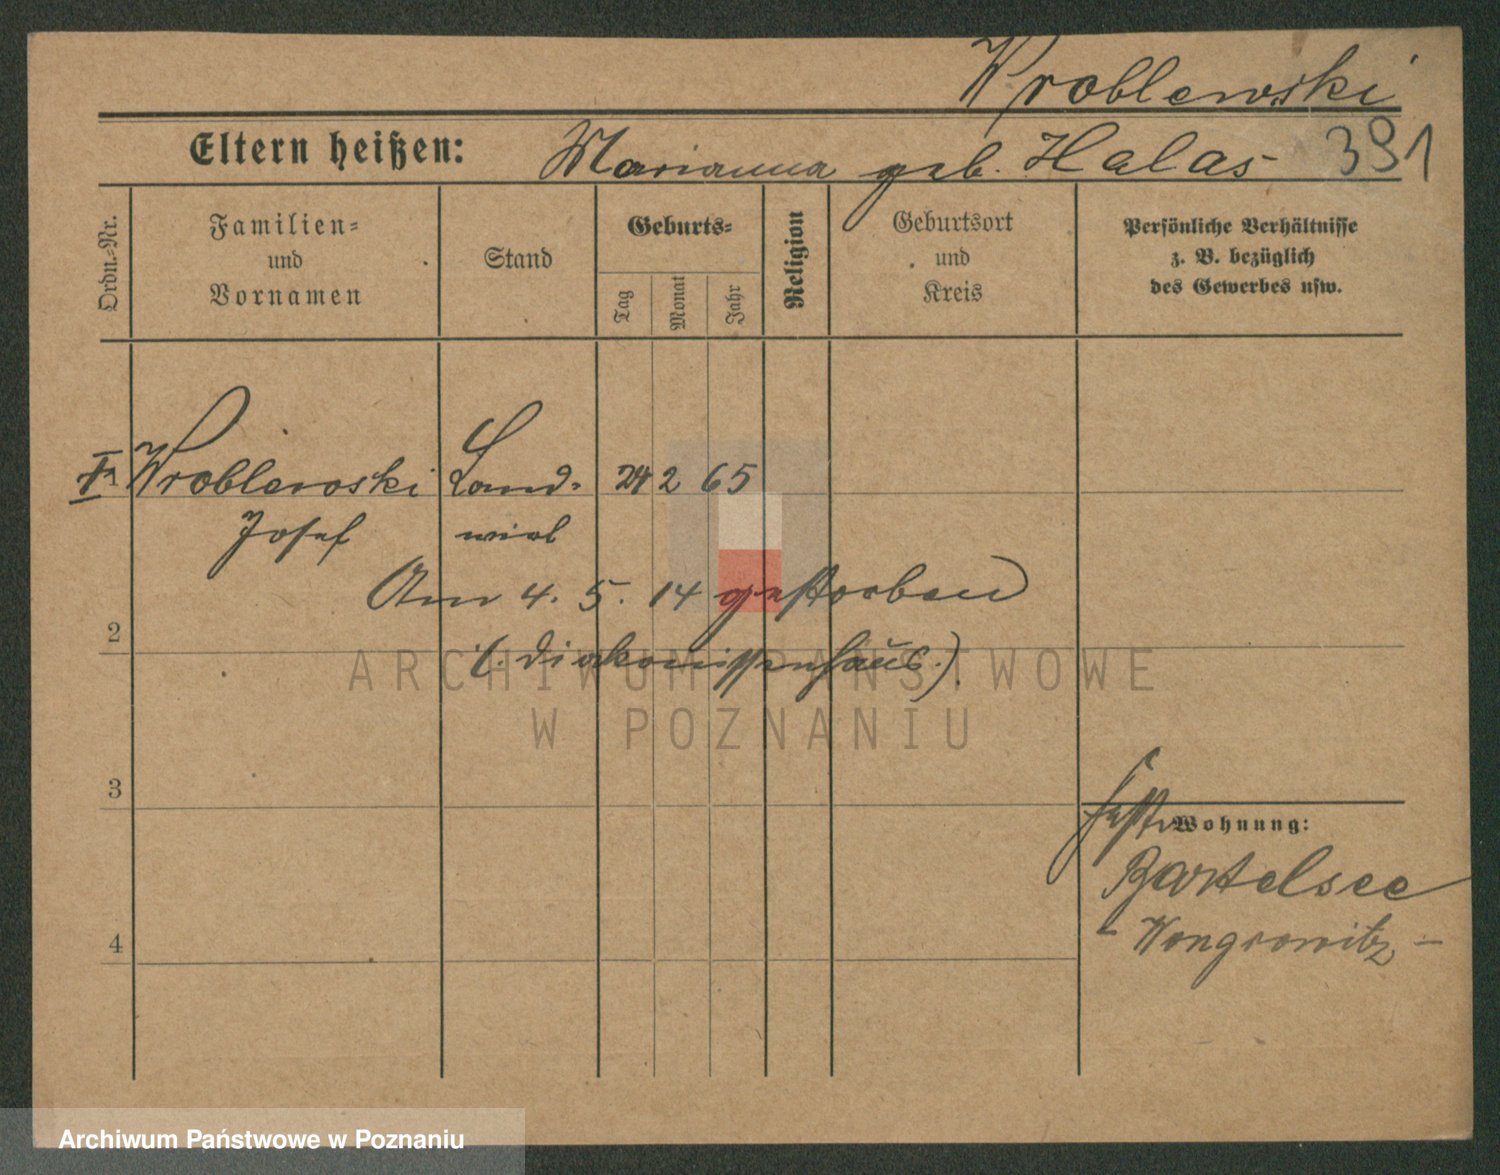 Wroblewski
Eltern heißen: Marianna geb. Halas 391
Ordn.-Nr.
Familien-
und
Vornamen
Stand
Geburts-
Tag
Monat
Jahr
Religion
Geburtsort
und
Kreis
Persönliche Verhältnisse
z. B. bezüglich
des Gewerbes usw.
1 Wroblewski Land- 24 2 65
Josef wirt
Am 4. 5. 14 gestorben
2
(Diakonissenhaus.)
ARCHIWUM PAŃSTWOWE
W POZNANIU
3
Wohnung:
Bartelsee
- Wongrowitz -
4
Archiwum Państwowe w Poznaniu